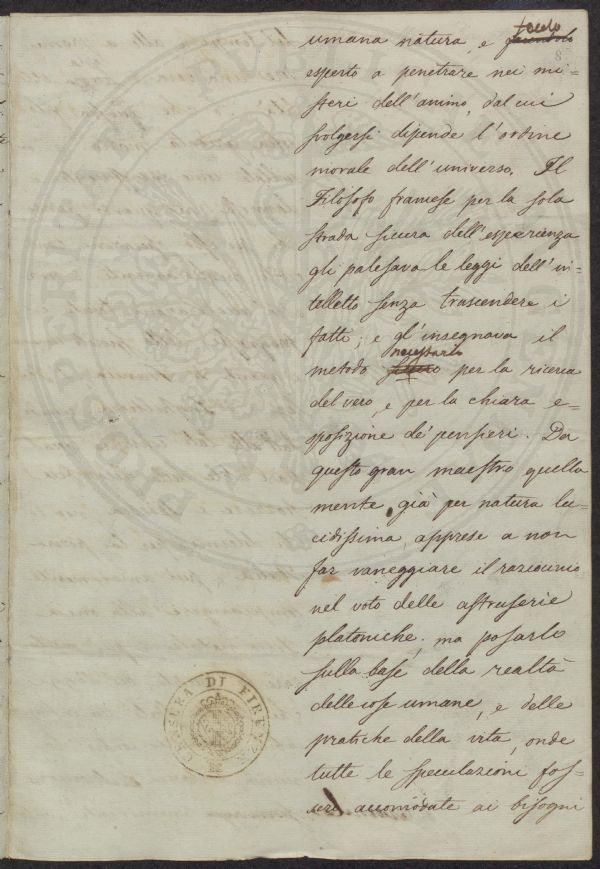 umana natura, e facendolo
esperto a penetrare nei mi=
steri dell'animo, dal cui
svolgersi dipende l'ordine
morale dell'universo. Il
Filosofo francese per la sola
strada sicura dell'esperienza
gli palesava le leggi dell'in=
telletto senza trascendere i
fatti; e gl'insegnava il
necessario
metodo per la ricerca
del vero, e per la chiara e=
sposizione de' pensieri. Da
questo gran maestro quella
mente, già per natura lu=
cidissima, apprese a non
far vaneggiare il raziocinio
nel voto delle astruserie
platoniche, ma posarlo
sulla base della realtà
delle cose umane, e delle
pratiche della vita, onde
tutte le speculazioni fos=
sero accomodate ai bisogni
CENSURA DI FIRENZE